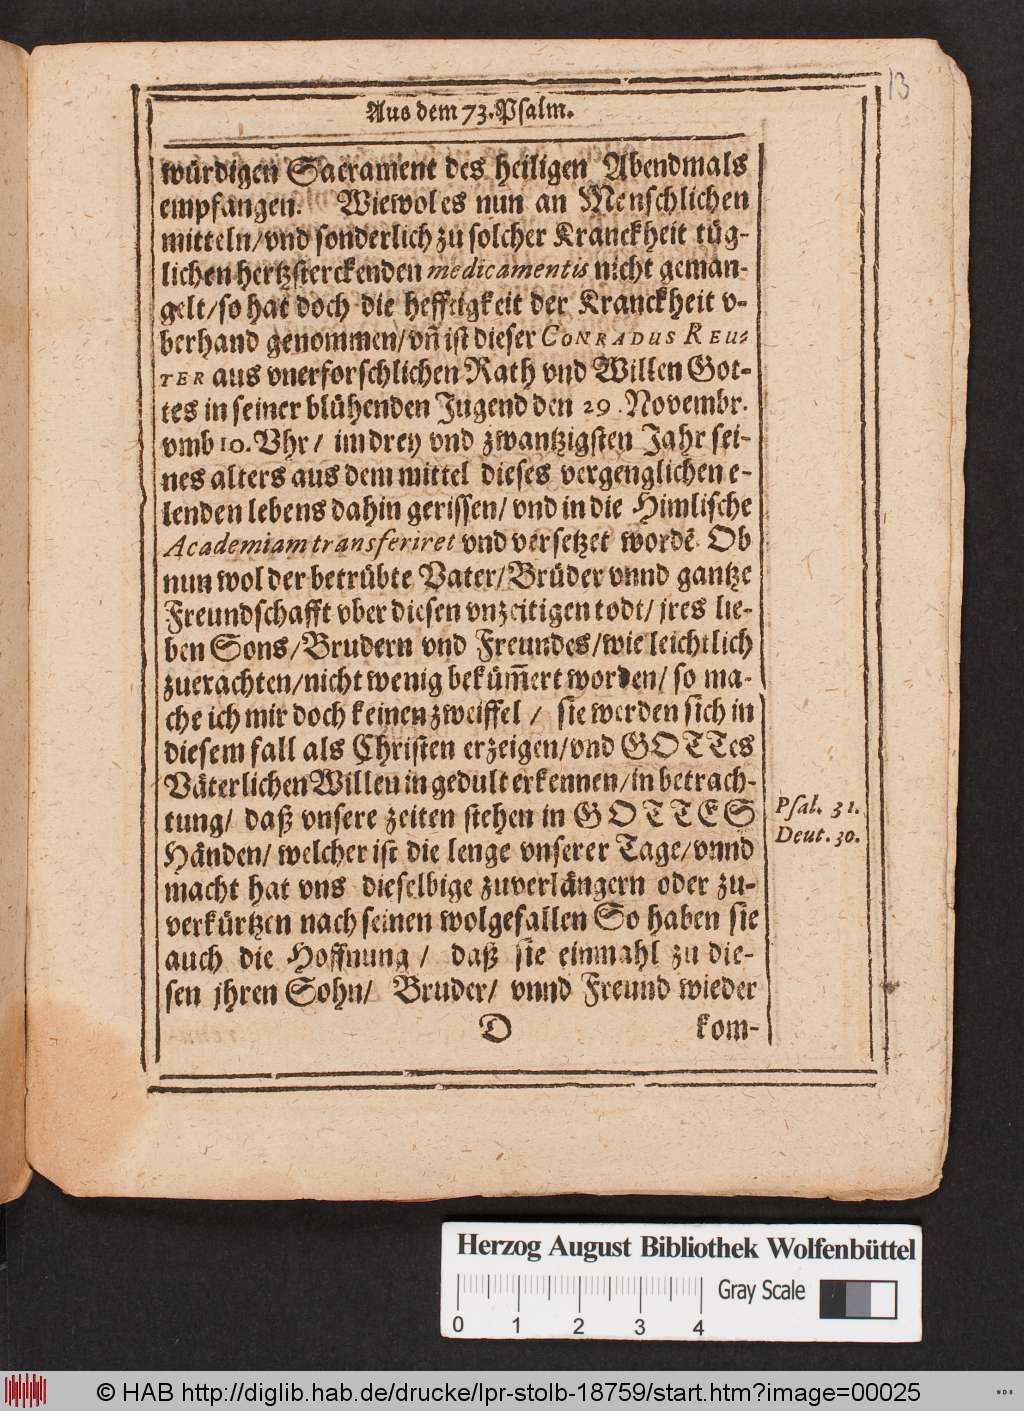 13
Aus dem 73. Psalm.
würdigen Sacrament des heiligen Abendmals
empfangen. Wiewol es nun an Menschlichen
mitteln/ vnd sonderlich zu solcher Kranckheit tüg-
lichen hertzsterckenden medicamentis nicht geman-
gelt/ so hat doch die hefftigkeit der Kranckheit v-
berhand genommen/ vñ ist dieser CONRADUS REU-
TER aus vnerforschlichen Rath vnd Willen Got-
tes in seiner blühenden Jugend den 29. Novembr.
vmb 10. Vhr/ im drey vnd zwantzigsten Jahr sei-
nes alters aus dem mittel dieses vergenglichen e-
lenden lebens dahin gerissen/ vnd in die Himlische
Academiam transferiret vnd versetzet wordẽ. Ob
nun wol der betrübte Vater/ Brüder vnnd gantze
Freundschafft vber diesen vnzeitigen todt/ jres lie-
ben Sons/ Brudern vnd Freundes/ wie leichtlich
zuerachten/ nicht wenig bekümm̃ert worden/ so ma-
che ich mir doch keinen zweiffel / sie werden sich in
diesem fall als Christen erzeigen/ vnd GOTTes
Väterlichen Willen in gedult erkennen/ in betrach-
tung/ daß vnsere zeiten stehen in GOTTES
Händen/ welcher ist die lenge vnserer Tage/ vnnd
macht hat vns dieselbige zuverlängern oder zu-
verkürtzen nach seinen wolgefallen So haben sie
auch die Hoffnung / daß sie einmahl zu die-
sen jhren Sohn/ Bruder/ vnnd Freund wieder
D kom-
Psal. 31.
Deut. 30.
Herzog August Bibliothek Wolfenbüttel
Gray Scale
0 1 2 3 4
© HAB http://diglib.hab.de/drucke/lpr-stolb-18759/start.htm?image=00025
WDB